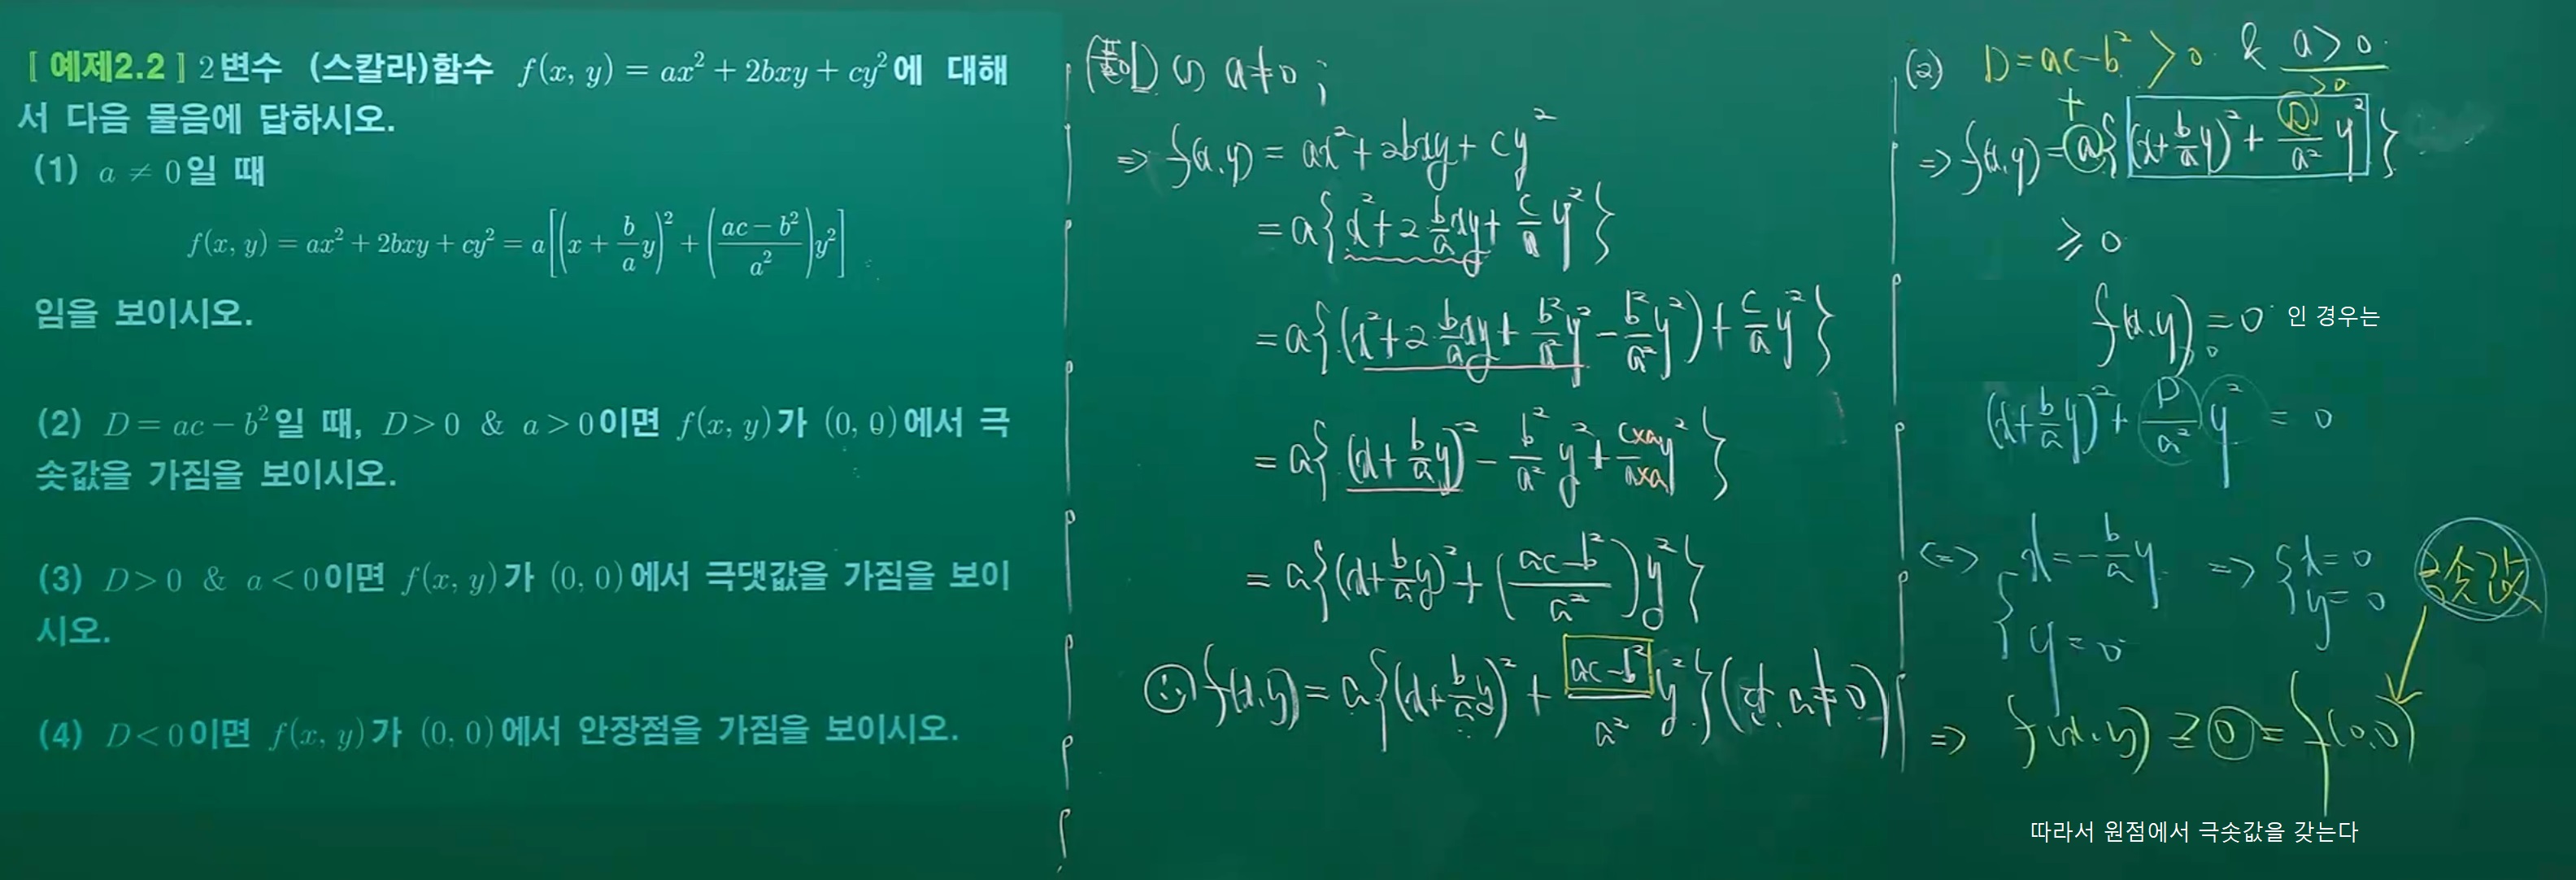 [ 예제2.2 ] 2변수 (스칼라)함수 f(x, y) = ax² + 2bxy + cy²에 대해
서 다음 물음에 답하시오.
(1) a ≠ 0일 때
f(x, y) = ax² + 2bxy + cy² = a[(x + b/a y)² + ((ac − b²)/a²)y²]
임을 보이시오.
(2) D = ac − b²일 때, D > 0 & a > 0이면 f(x, y)가 (0, 0)에서 극
솟값을 가짐을 보이시오.
(3) D > 0 & a < 0이면 f(x, y)가 (0, 0)에서 극댓값을 가짐을 보이
시오.
(4) D < 0이면 f(x, y)가 (0, 0)에서 안장점을 가짐을 보이시오.
(1) a ≠ 0 ;
⇒ f(x, y) = ax² + 2bxy + cy²
= a{x² + 2 b/a xy + c/a y²}
= a{(x² + 2 b/a xy + b²/a² y² − b²/a² y²) + c/a y²}
= a{(x + b/a y)² − b²/a² y² + c×a/a×a y²}
= a{(x + b/a y)² + ((ac − b²)/a²)y²}
∴ f(x, y) = a{(x + b/a y)² + (ac − b²)/a² y²} (단, a ≠ 0)
(2) D = ac − b² > 0 & a > 0
+ > 0
⇒ f(x, y) = a{(x + b/a y)² + D/a² y²}
≥ 0
f(x, y) = 0 인 경우는
(x + b/a y)² + D/a² y² = 0
⇔ { x = −b/a y, y = 0 ⇒ { x = 0, y = 0 극솟값
⇒ f(x, y) ≥ 0 = f(0, 0)
따라서 원점에서 극솟값을 갖는다